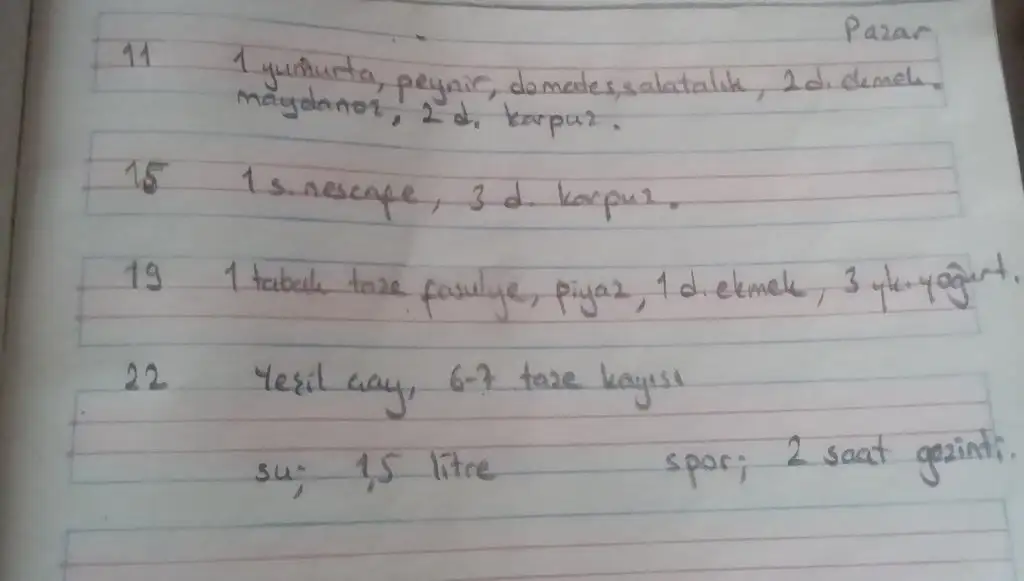 Pazar
11 1 yumurta, peynir, domades, salatalık, 2 d. ekmek.
maydanoz, 2 d. karpuz.
15 1 s. nescafe, 3 d. karpuz.
19 1 tabak taze fasulye, piyaz, 1 d. ekmek, 3 yk. yoğurt.
22 Yeşil çay, 6-7 taze kayısı
su; 1,5 litre spor; 2 saat gezinti.